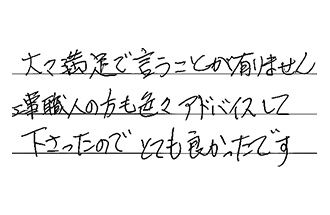 大々満足で言うことが有りません
運職人の方も色々アドバイスして
下さったので とても良かったです